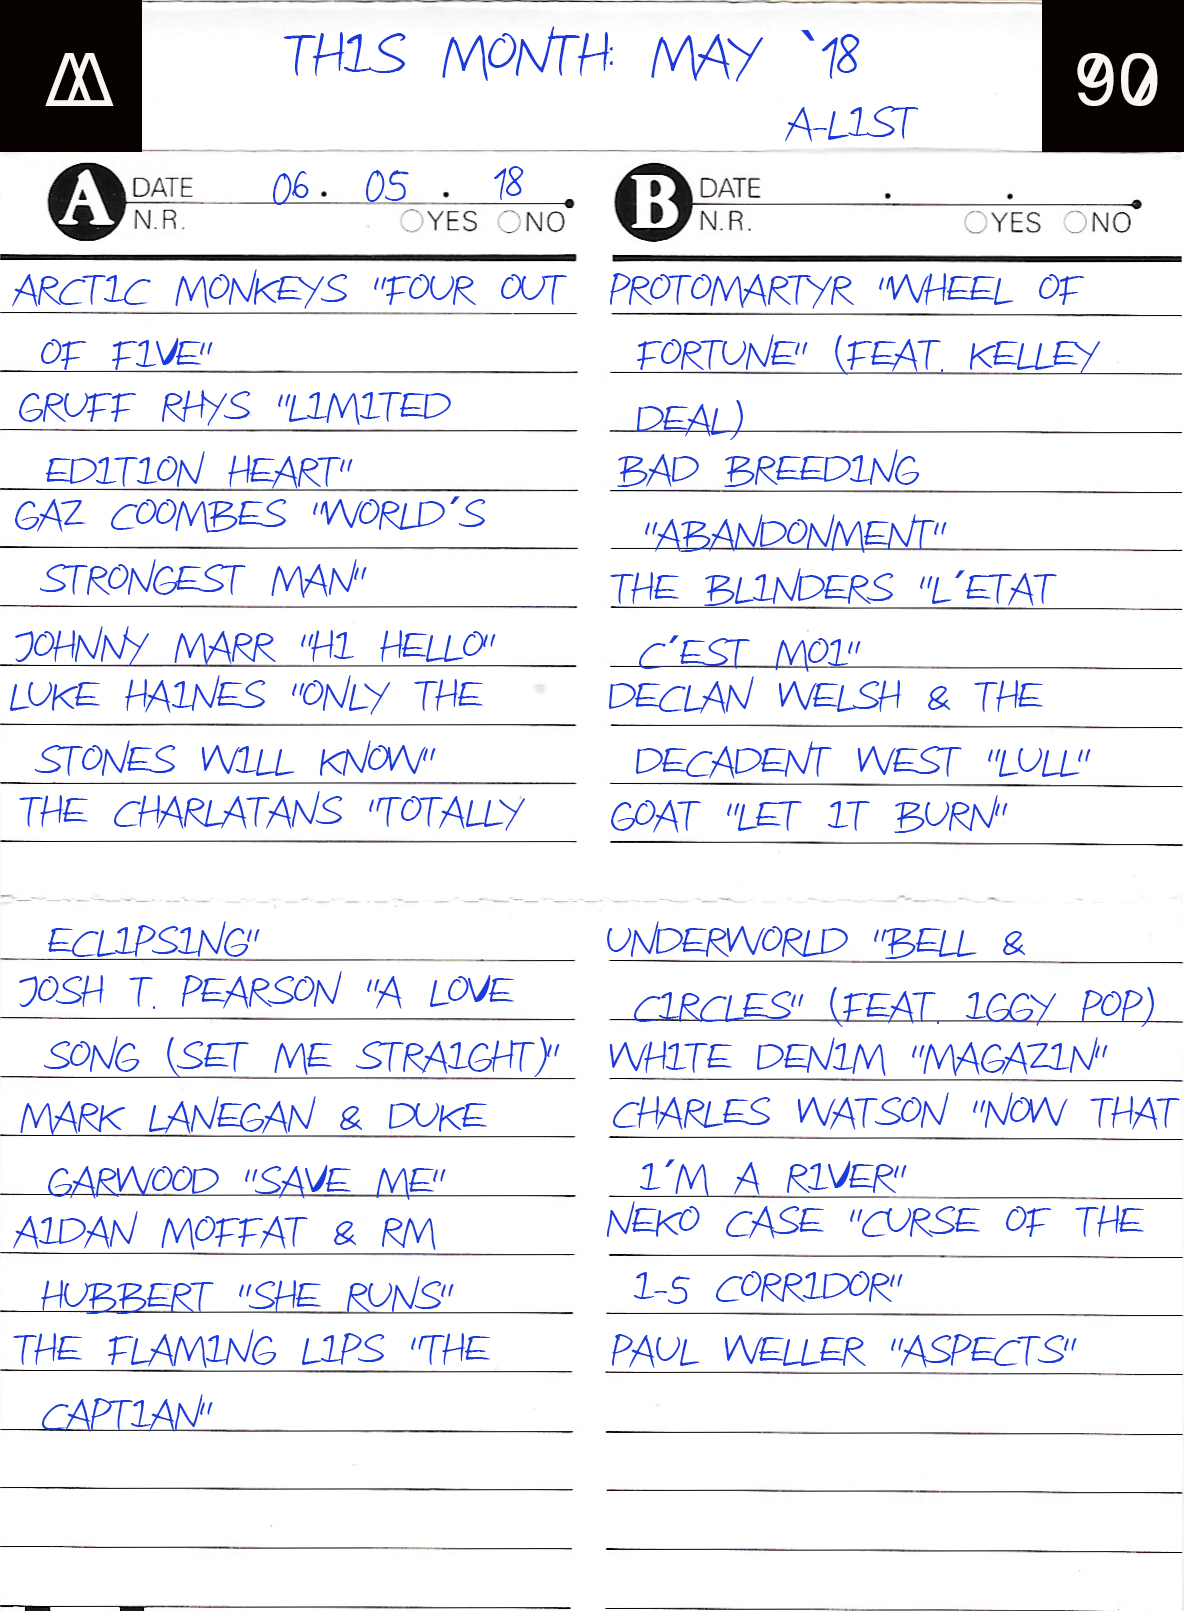 M
THIS MONTH: MAY `18
A-LIST
90
A
DATE 06. 05 . 18
N.R. YES NO
ARCTIC MONKEYS "FOUR OUT
OF FIVE"
GRUFF RHYS "LIMITED
EDITION HEART"
GAZ COOMBES "WORLD´S
STRONGEST MAN"
JOHNNY MARR "HI HELLO"
LUKE HAINES "ONLY THE
STONES WILL KNOW"
THE CHARLATANS "TOTALLY
ECLIPSING"
JOSH T. PEARSON "A LOVE
SONG (SET ME STRAIGHT)"
MARK LANEGAN & DUKE
GARWOOD "SAVE ME"
AIDAN MOFFAT & RM
HUBBERT "SHE RUNS"
THE FLAMING LIPS "THE
CAPTIAN"
B
DATE . .
N.R. YES NO
PROTOMARTYR "WHEEL OF
FORTUNE" (FEAT. KELLEY
DEAL)
BAD BREEDING
"ABANDONMENT"
THE BLINDERS "L´ETAT
C´EST MOI"
DECLAN WELSH & THE
DECADENT WEST "LULL"
GOAT "LET IT BURN"
UNDERWORLD "BELL &
CIRCLES" (FEAT. IGGY POP)
WHITE DENIM "MAGAZIN"
CHARLES WATSON "NOW THAT
I´M A RIVER"
NEKO CASE "CURSE OF THE
I-5 CORRIDOR"
PAUL WELLER "ASPECTS"